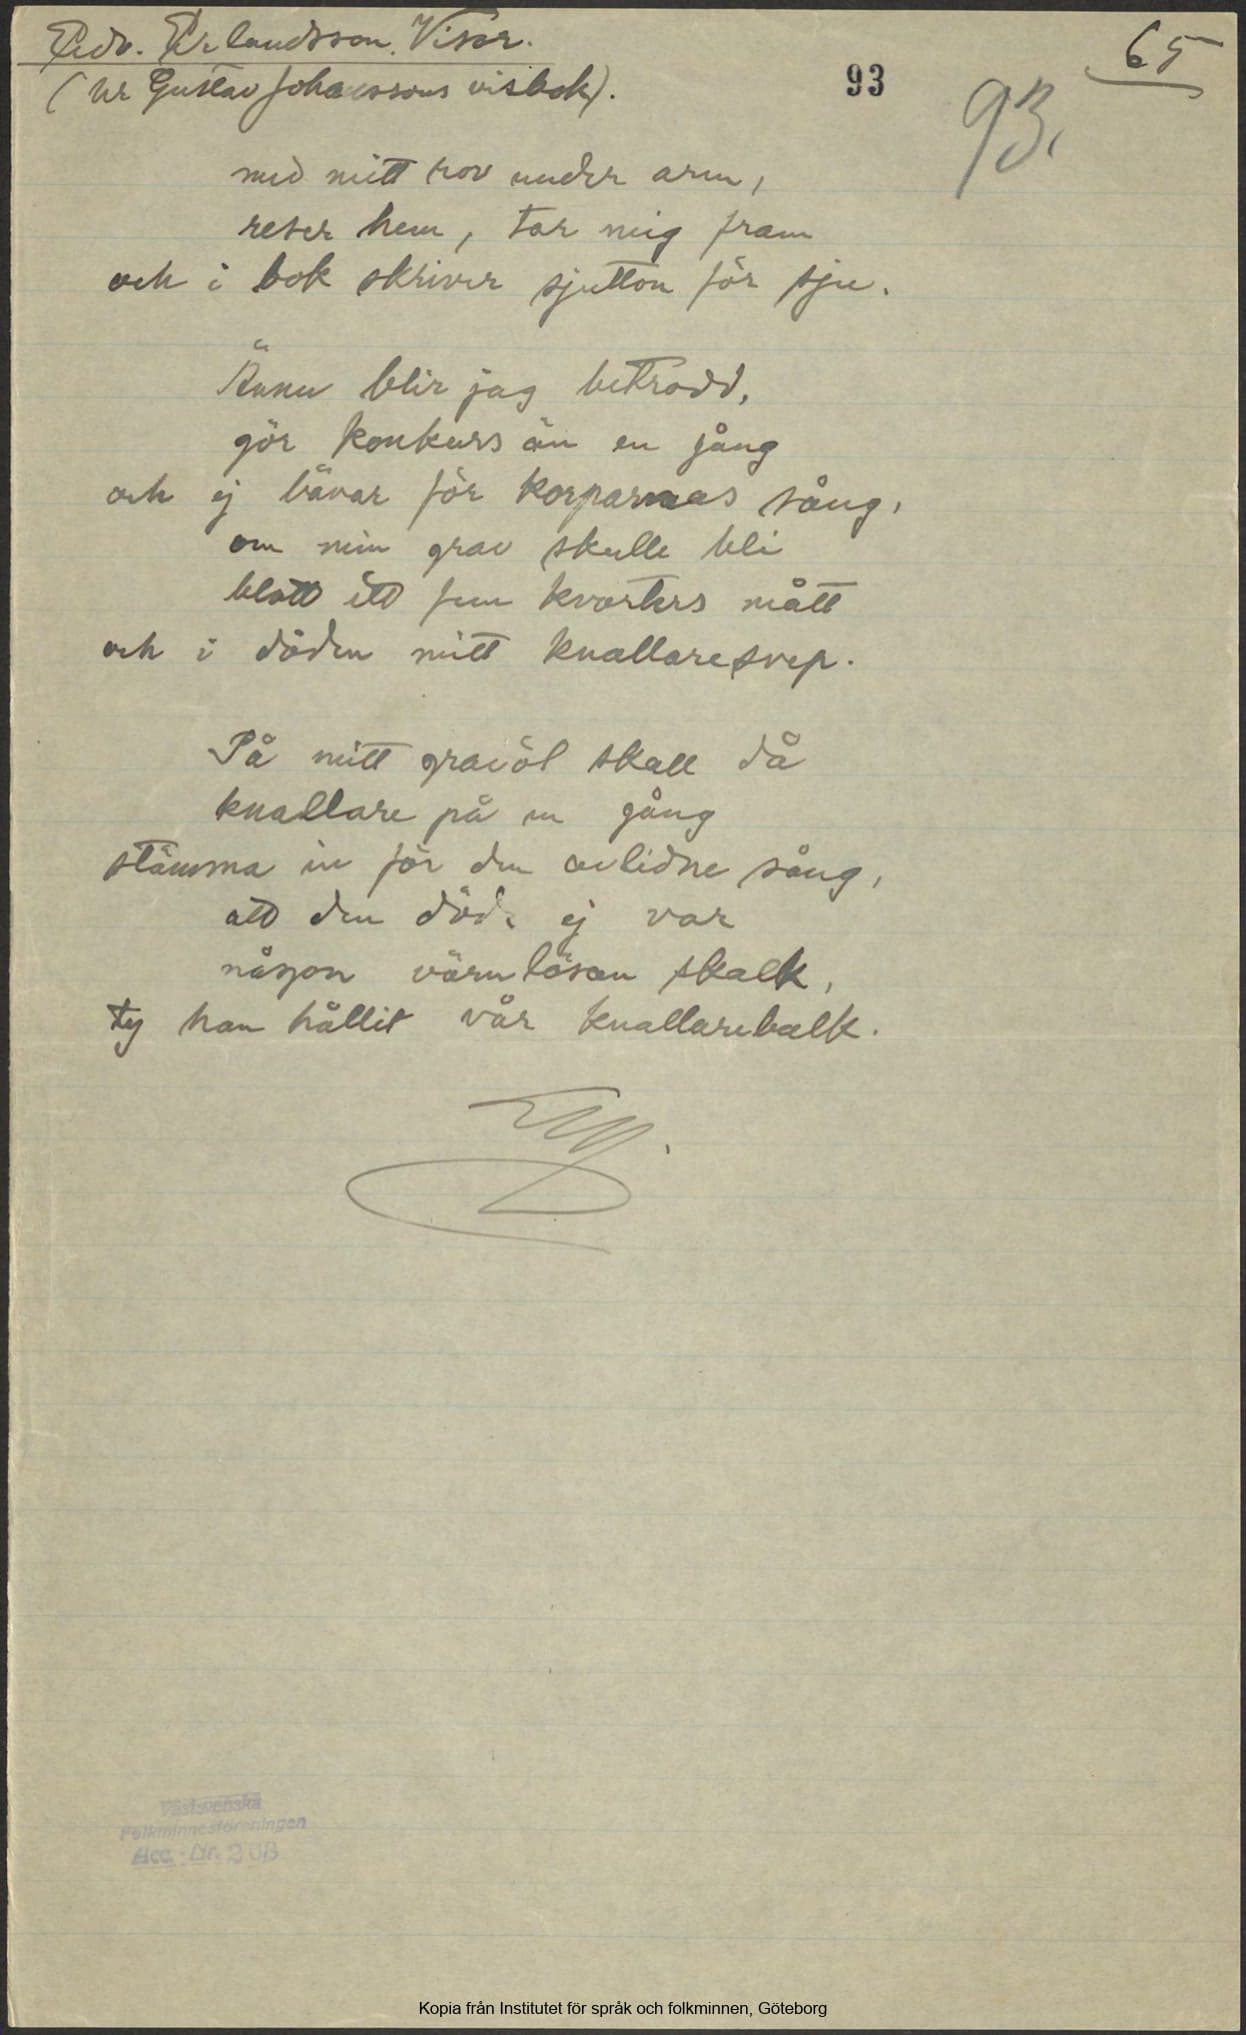 Edv. Erlandsson. Visor.
65
(ur Gustav Johanssons visbok).
93
93.
med mitt rov under arm,
reser hem, tar mig fram
och i bok skriver sjutton för sju.
Ännu blir jag betrodd,
gör konkurs än en gång
och ej bävar för korparnas sång,
om min grav skulle bli
blott ett fem kvarters mått
och i döden mitt knallaresvep.
På mitt gravöl skall då
knallare på en gång
stämma in för den avlidne sång,
att den död. ej var
någon värnlösan skalk,
ty han hållit vår knallarebalk.
Västsvenska
Folkminnesföreningen
Acc. Nr. 268
Kopia från Institutet för språk och folkminnen, Göteborg